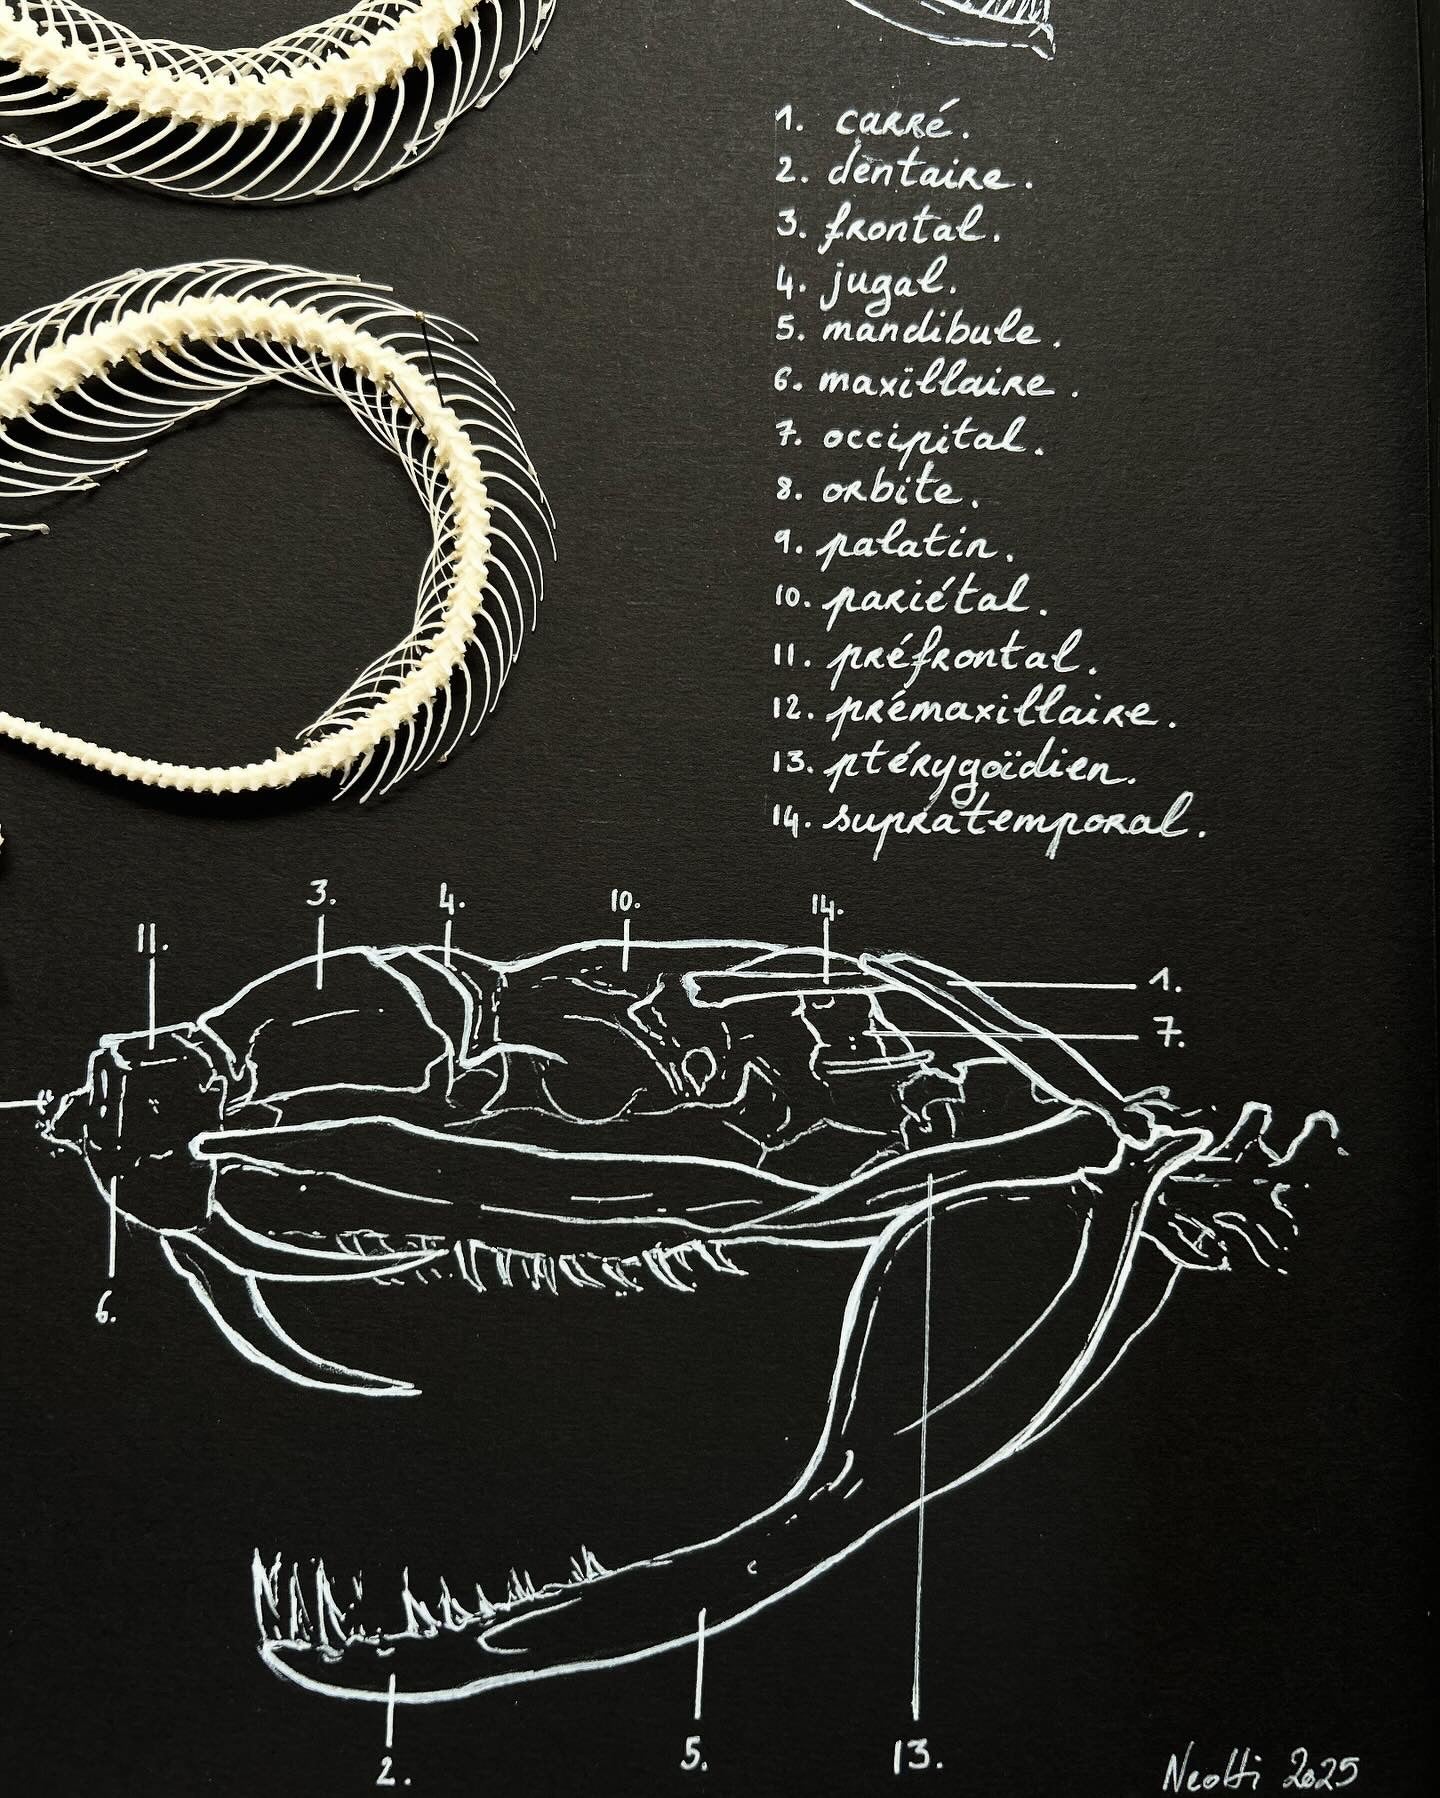 1. carré.
2. dentaire.
3. frontal.
4. jugal.
5. mandibule.
6. maxillaire.
7. occipital.
8. orbite.
9. palatin.
10. pariétal.
11. préfrontal.
12. prémaxillaire.
13. ptérygoïdien.
14. supratemporal.
3. 4. 10. 14.
11.
1.
7.
6.
5. 13.
2.
Neotti 2025